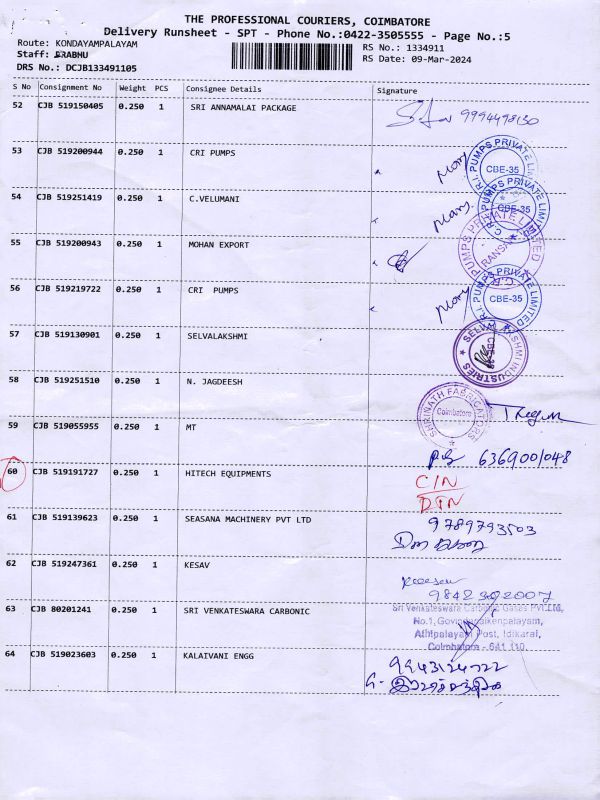 THE PROFESSIONAL COURIERS, COIMBATORE
Delivery Runsheet - SPT - Phone No.:0422-3505555 - Page No.:5
Route: KONDAYAMPALAYAM
Staff: PRABHU
DRS No.: DCJB133491105
RS No.: 1334911
RS Date: 09-Mar-2024
S No Consignment No Weight PCS Consignee Details Signature
52 CJB 519150405 0.250 1 SRI ANNAMALAI PACKAGE
53 CJB 519200944 0.250 1 CRI PUMPS
C.R.I. PUMPS PRIVATE LIMITED CBE-35
54 CJB 519251419 0.250 1 C.VELUMANI
C.R.I. PUMPS PRIVATE LIMITED CBE-35
55 CJB 519200943 0.250 1 MOHAN EXPORT
C.R.I. PUMPS PRIVATE LIMITED
56 CJB 519219722 0.250 1 CRI PUMPS
C.R.I. PUMPS PRIVATE LIMITED CBE-35
57 CJB 519130901 0.250 1 SELVALAKSHMI
SELVALAKSHMI INDUSTRIES
58 CJB 519251510 0.250 1 N. JAGDEESH
SHRINATH FABRICATORS Coimbatore
59 CJB 519055955 0.250 1 MT
6369001048
60 CJB 519191727 0.250 1 HITECH EQUIPMENTS
C/N
DTN
61 CJB 519139623 0.250 1 SEASANA MACHINERY PVT LTD
9789793503
62 CJB 519247361 0.250 1 KESAV
9842302007
63 CJB 80201241 0.250 1 SRI VENKATESWARA CARBONIC
Sri Venkateswara Carbonic Gases PVT.Ltd,
No.1, Govindanaikenpalayam,
Athipalayam Post, Idikarai,
Coimbatore - 641 110.
64 CJB 519023603 0.250 1 KALAIVANI ENGG
9943124722